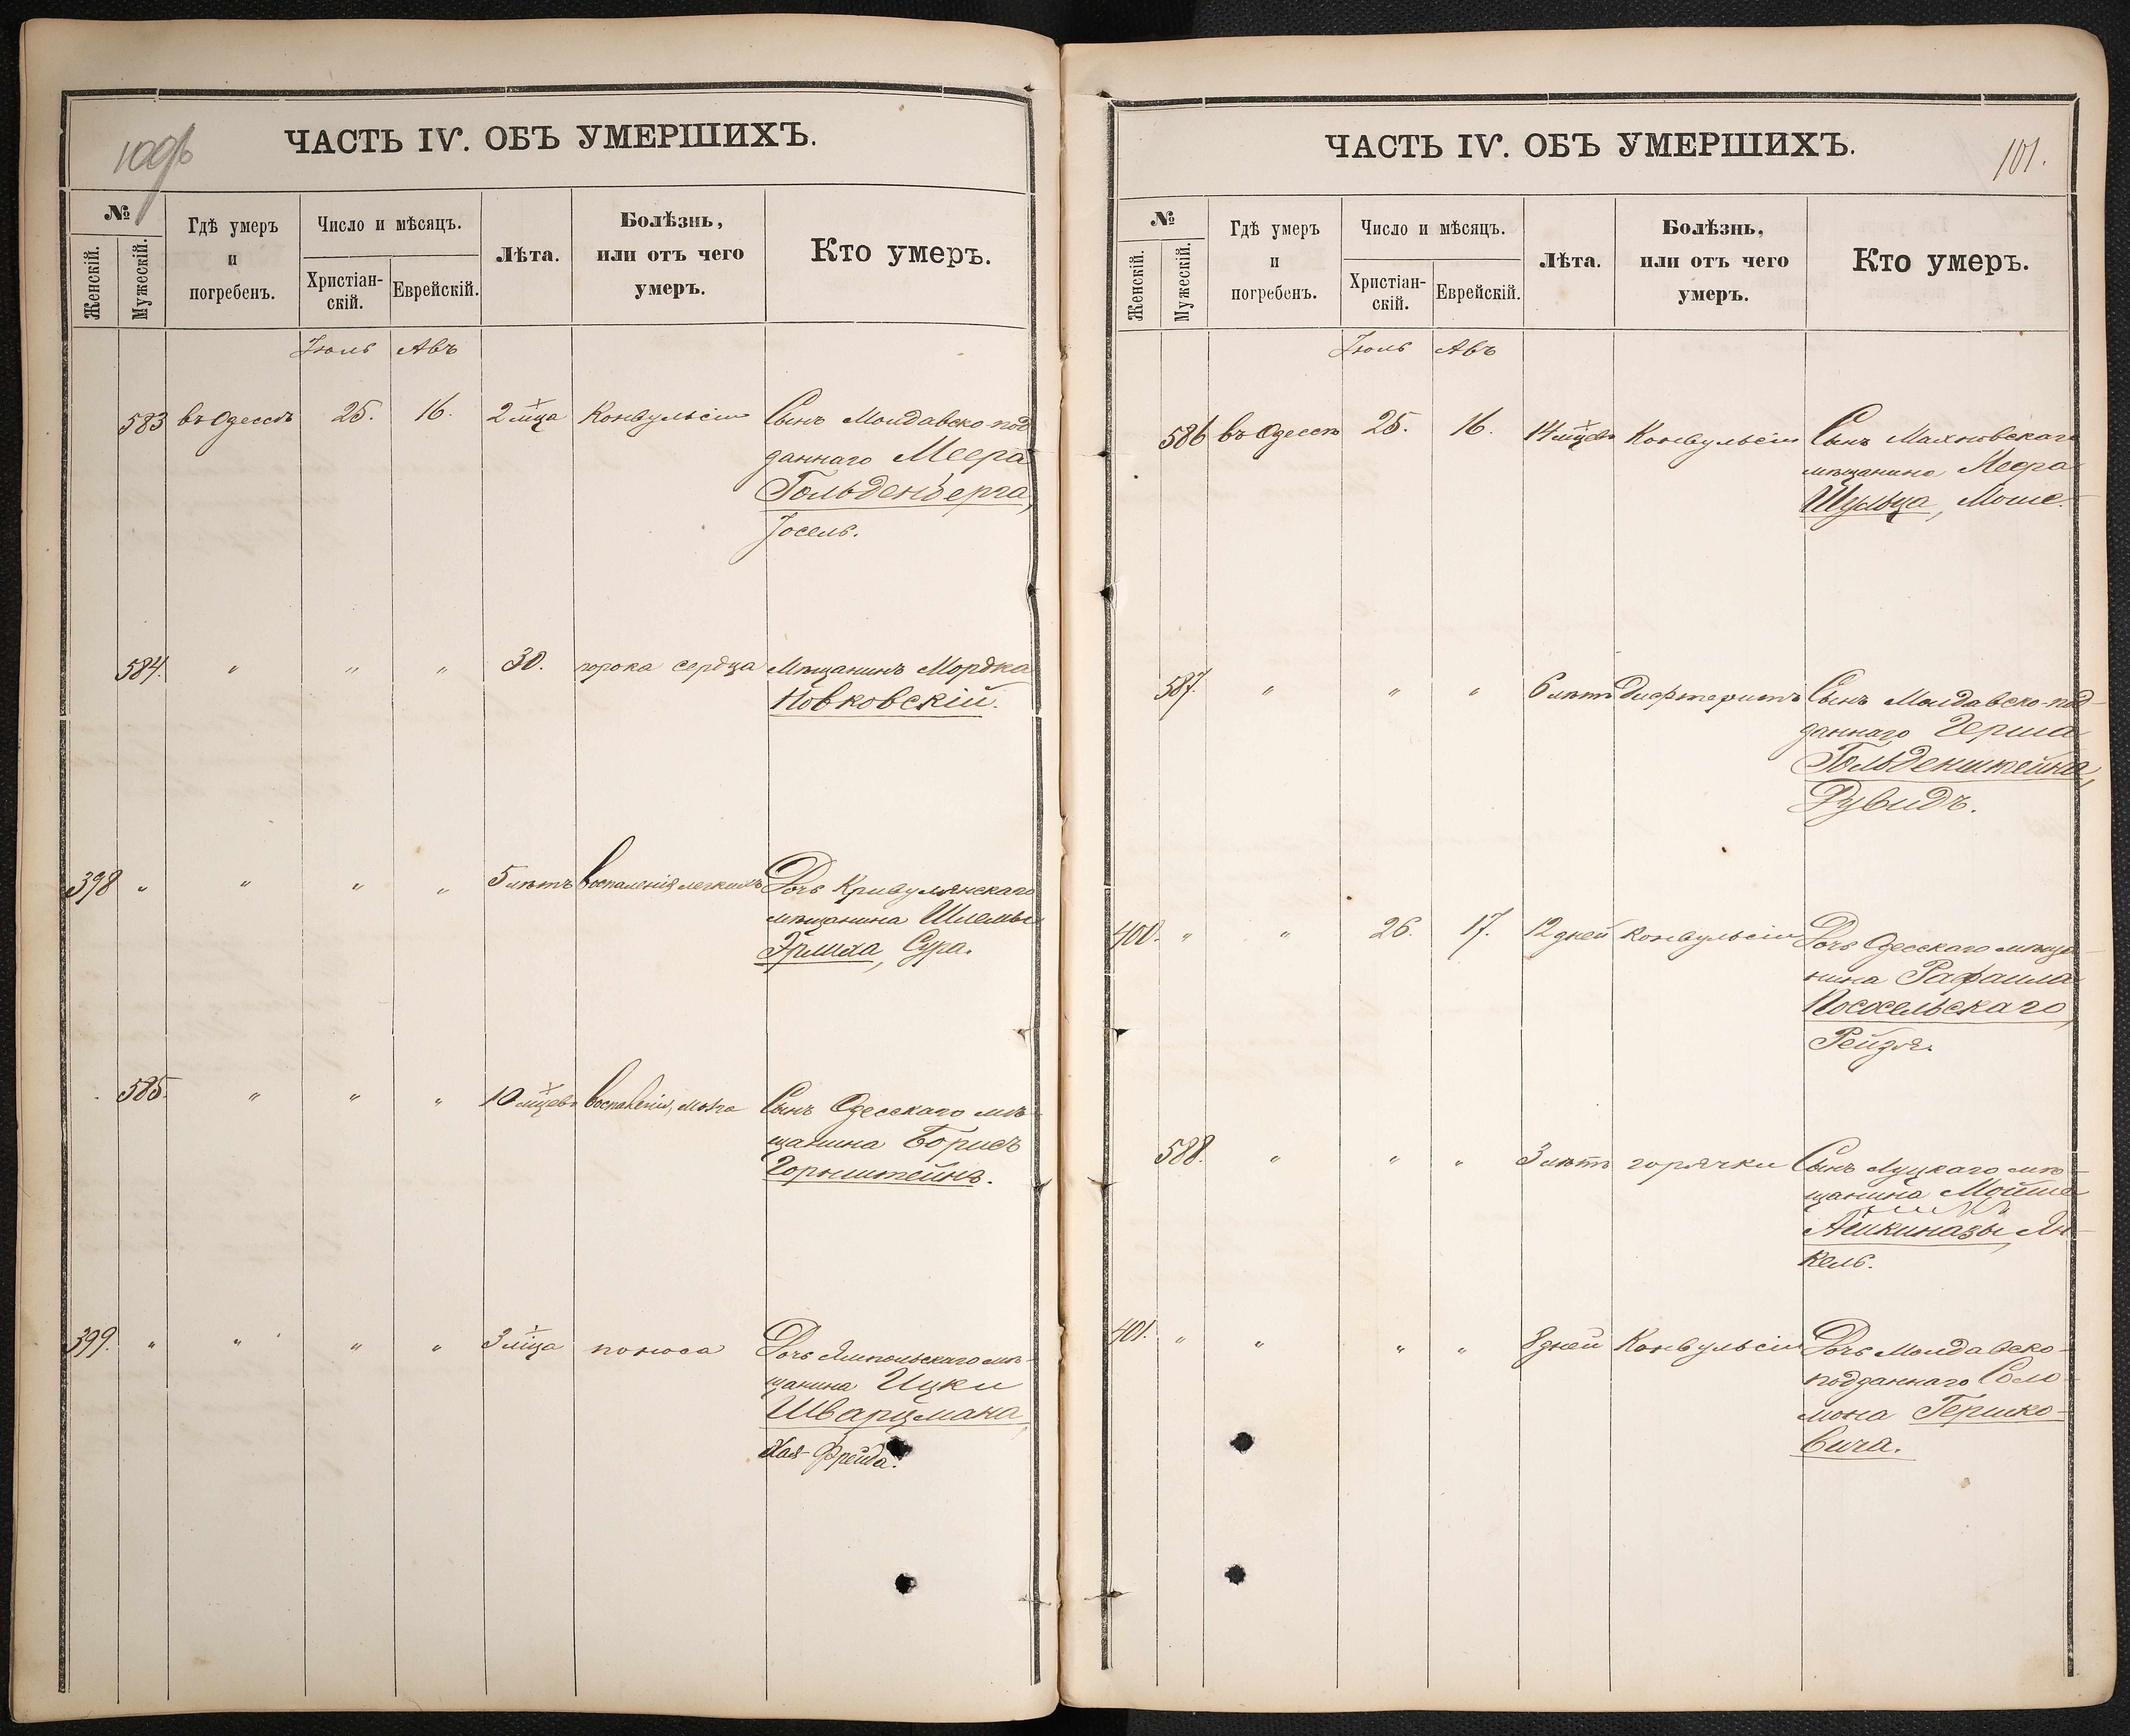 100об
ЧАСТЬ IV. ОБЪ УМЕРШИХЪ.
№
Женскій.
Мужескій.
Гдѣ умеръ
и
погребенъ.
Число и мѣсяцъ.
Христіан-
скій.
Еврейскій.
Лѣта.
Болѣзнь,
или отъ чего
умеръ.
Кто умеръ.
Іюль Авъ
583 въ Одессѣ 25. 16. 2 мца Конвульсіи Сынъ Молдавско-под
даннаго Меера
Гольденберга,
Іосель.
584. " " " 30. порока сердца Мѣщанинъ Мордка
Новковскій.
398 " " " " 5 лѣтъ воспаленія легкихъ Дочь Кривулянскаго
мѣщанина Шлемы
Эрлиха, Сура.
585. " " " 10 мцевъ воспаленія мозга Сынъ Одесскаго мѣ-
щанина Борисъ
Горнштейнъ.
399. " " " " 3 мца поноса Дочь Ямпольскаго мѣ-
щанина Ицки
Шварцмана,
Хая-Фрейда.
101.
ЧАСТЬ IV. ОБЪ УМЕРШИХЪ.
№
Женскій.
Мужескій.
Гдѣ умеръ
и
погребенъ.
Число и мѣсяцъ.
Христіан-
скій.
Еврейскій.
Лѣта.
Болѣзнь,
или отъ чего
умеръ.
Кто умеръ.
Іюль Авъ
586 въ Одессѣ 25. 16. 14 мцевъ Конвульсіи Сынъ Махновскаго
мѣщанина Меера
Шульца, Моше.
587. " " " 6 лѣтъ Дифтеритъ Сынъ Молдавско-под-
даннаго Герша
Гольденштейна,
Рувидъ.
400. " " 26. 17. 12 дней конвульсіи Дочь Одесскаго мѣща-
нина Рафаила
Поскельскаго,
Рейзя.
588. " " " 3 лѣтъ горячки Сынъ Луцкаго мѣ-
щанина Мойше
Ашкиназы, Ян-
кель.
401. " " " " 8 дней Конвульсіи Дочь Молдавско-
подданнаго Соло-
мона Гершко-
вича.